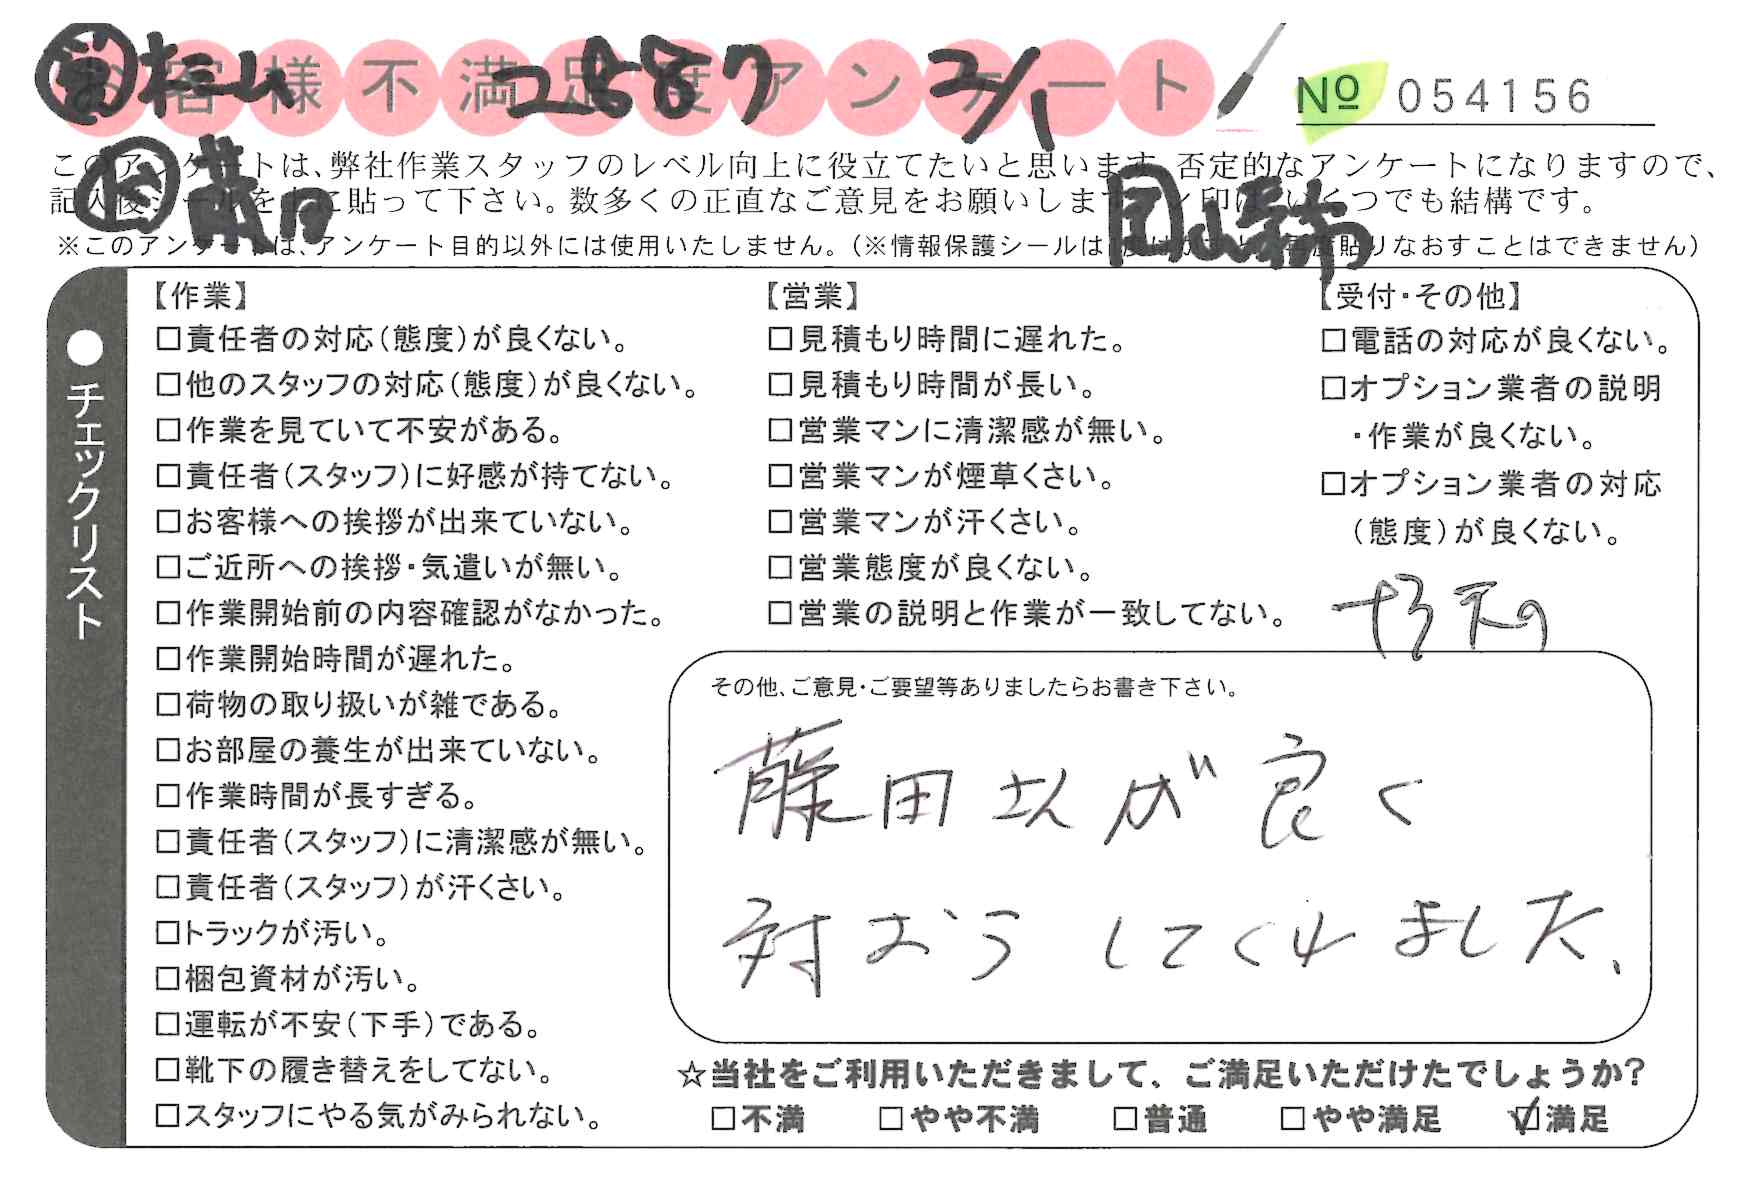 お客様不満足度アンケート
2/1
№ 054156
このアンケートは、弊社作業スタッフのレベル向上に役立てたいと思います。否定的なアンケートになりますので、
記入後シールを上に貼って下さい。数多くの正直なご意見をお願いします。レ印はいくつでも結構です。
※このアンケートは、アンケート目的以外には使用いたしません。(※情報保護シールは 再度貼りなおすことはできません)
●チェックリスト
【作業】
□責任者の対応(態度)が良くない。
□他のスタッフの対応(態度)が良くない。
□作業を見ていて不安がある。
□責任者(スタッフ)に好感が持てない。
□お客様への挨拶が出来ていない。
□ご近所への挨拶・気遣いが無い。
□作業開始前の内容確認がなかった。
□作業開始時間が遅れた。
□荷物の取り扱いが雑である。
□お部屋の養生が出来ていない。
□作業時間が長すぎる。
□責任者(スタッフ)に清潔感が無い。
□責任者(スタッフ)が汗くさい。
□トラックが汚い。
□梱包資材が汚い。
□運転が不安(下手)である。
□靴下の履き替えをしてない。
□スタッフにやる気がみられない。
【営業】
□見積もり時間に遅れた。
□見積もり時間が長い。
□営業マンに清潔感が無い。
□営業マンが煙草くさい。
□営業マンが汗くさい。
□営業態度が良くない。
□営業の説明と作業が一致してない。
【受付・その他】
□電話の対応が良くない。
□オプション業者の説明
・作業が良くない。
□オプション業者の対応
(態度)が良くない。
その他、ご意見・ご要望等ありましたらお書き下さい。
藤田さんが良く
対おうしてくれました、
☆当社をご利用いただきまして、ご満足いただけたでしょうか?
□不満 □やや不満 □普通 □やや満足 ☑満足